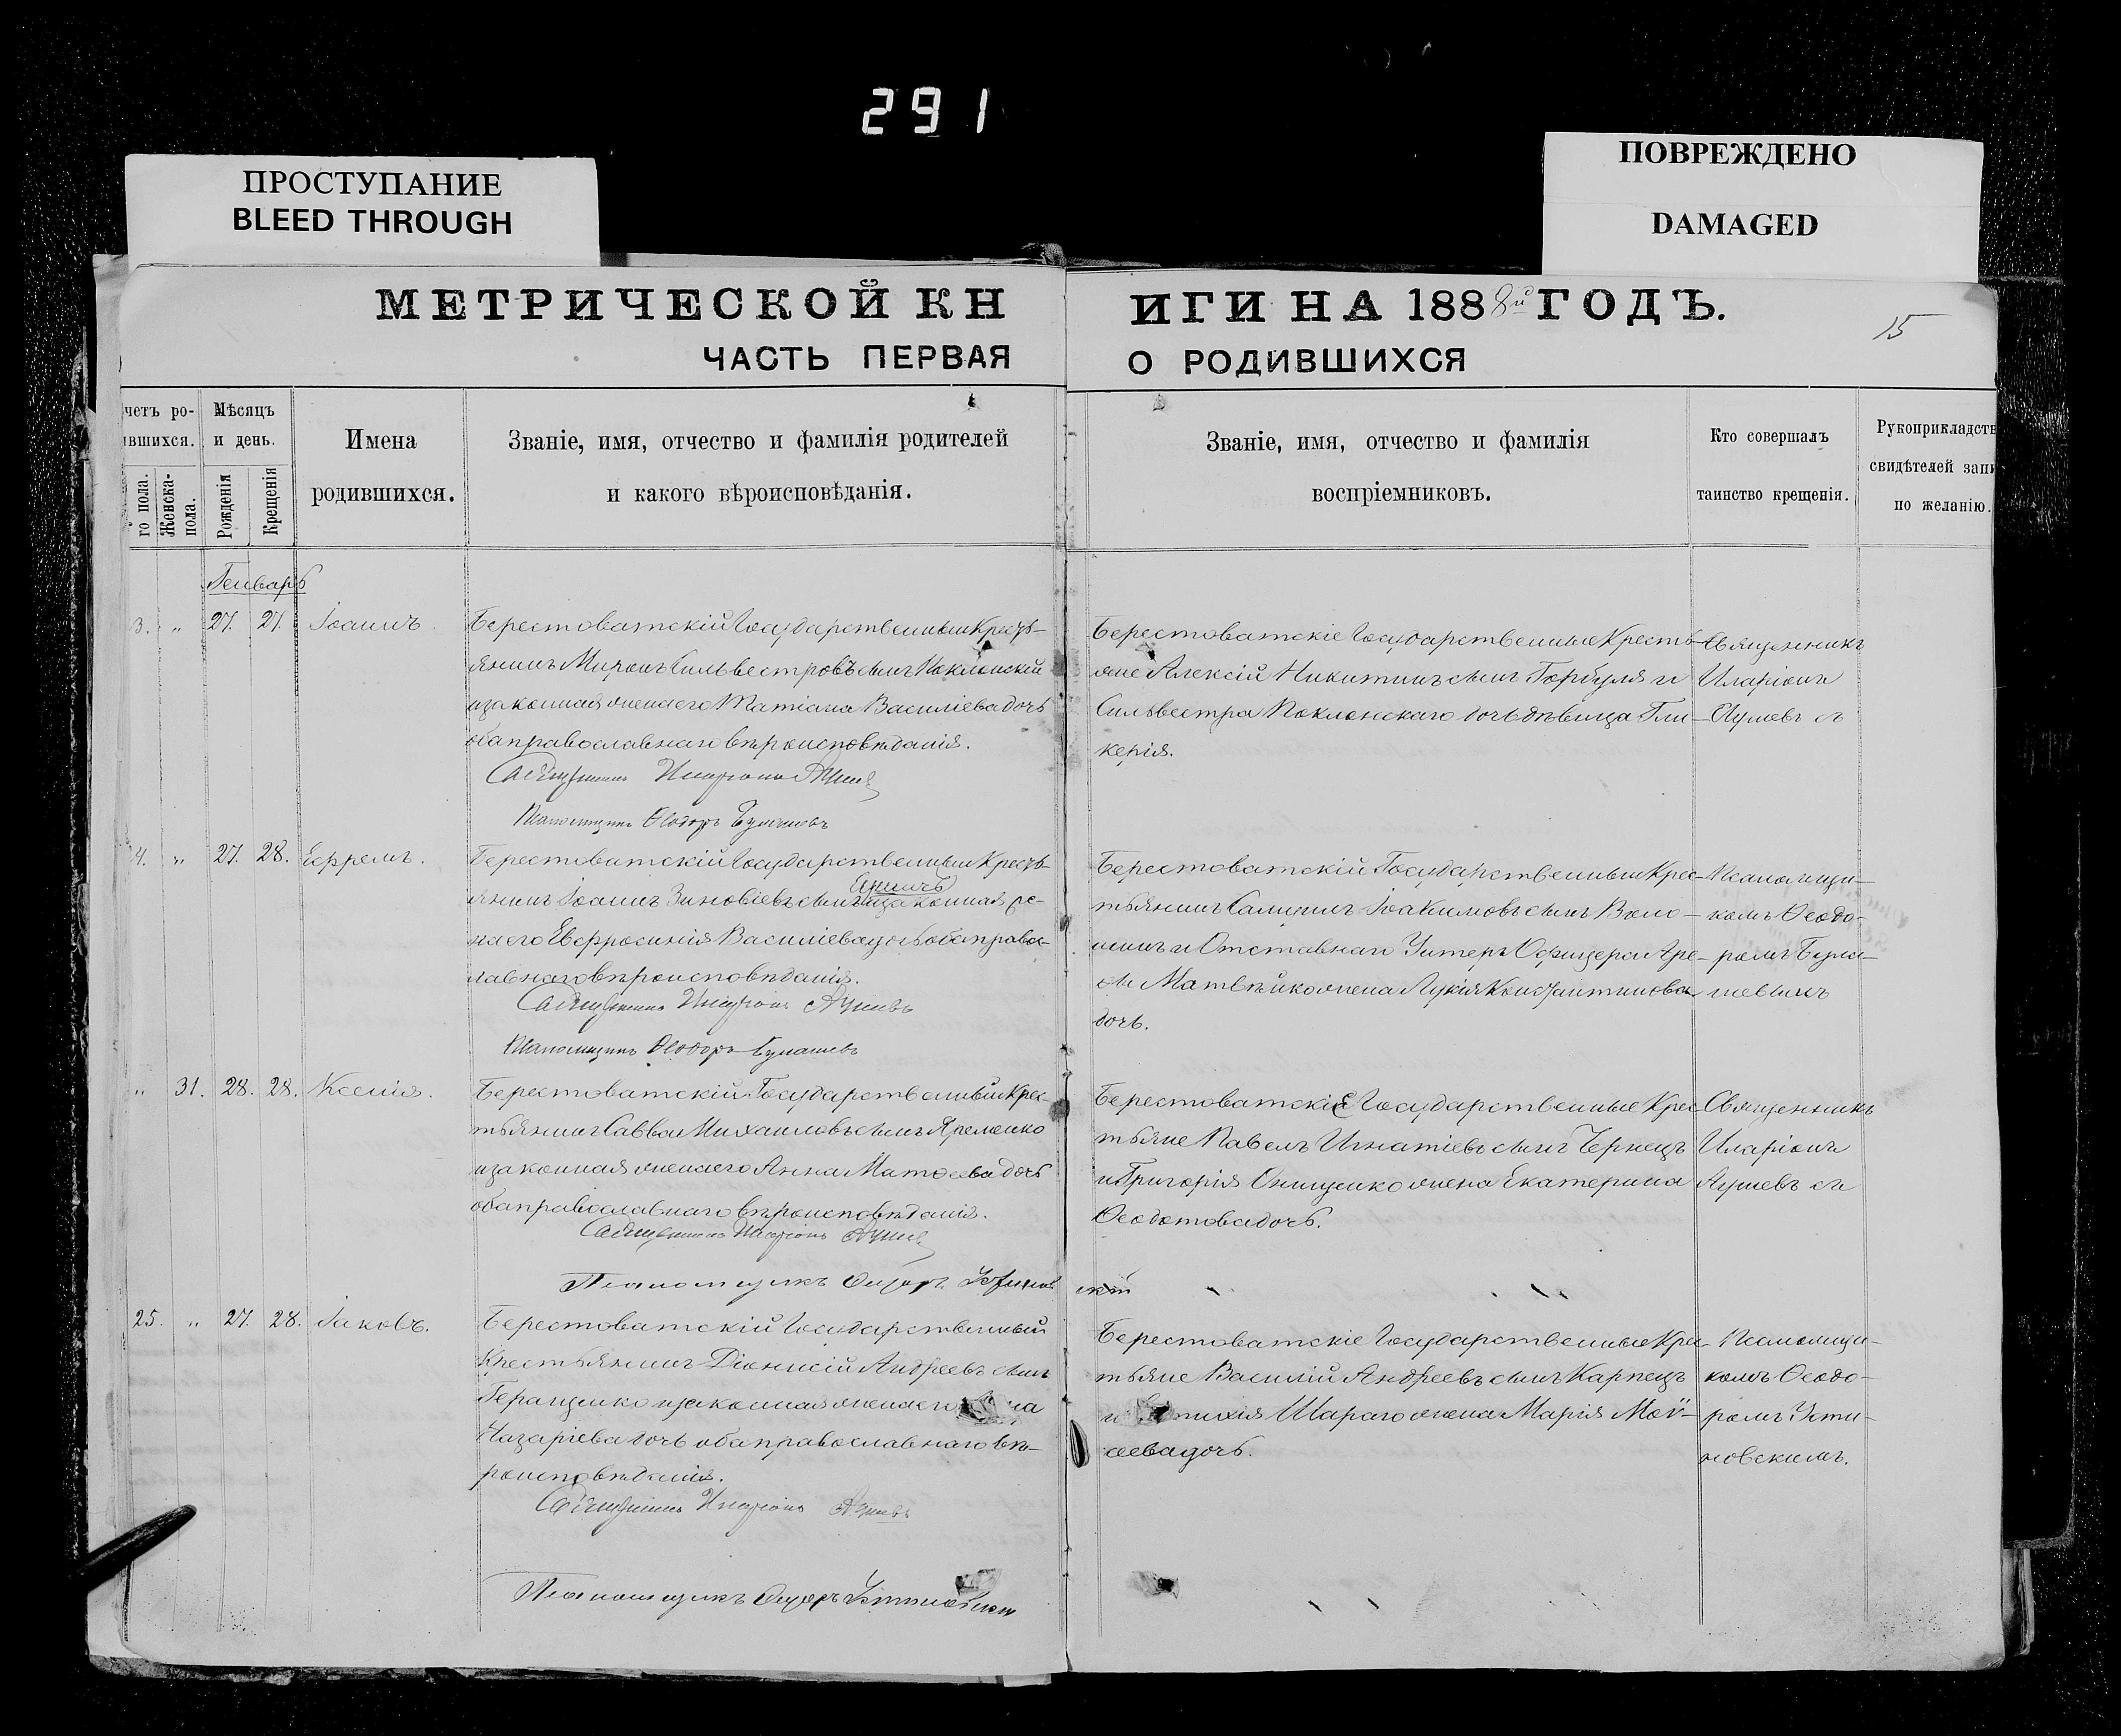 291
ПРОСТУПАНИЕ
BLEED THROUGH
ПОВРЕЖДЕНО
DAMAGED
МЕТРИЧЕСКОЙ КН
ИГИ НА 1888й ГОДЪ.
15
ЧАСТЬ ПЕРВАЯ
О РОДИВШИХСЯ
четъ ро-
вшихся.
го пола.
Женска-
пола.
Мѣсяцъ
и день.
Рожденія
Крещенія
Имена
родившихся.
Званіе, имя, отчество и фамилія родителей
и какого вѣроисповѣданія.
Званіе, имя, отчество и фамилія
воспріемниковъ.
Кто совершалъ
таинство крещенія.
Рукоприкладств
свидѣтелей запи
по желанію.
Генварь
3. „ 27. 27. Іоаннъ
Берестоватскій Государственный Кресть-
янинъ Миронъ Сильвестровъ сынъ Поклонскій
и законная жена его Татіана Василіева дочь
оба православнаго вѣроисповѣданія.
Священникъ Иларіонъ
Псаломщикъ Ѳеодоръ
Берестоватскіе Государственные Кресть-
яне Алексій Никитинъ сынъ Горбуля и
Сильвестра Поклонскаго дочь дѣвица Гли-
керія.
Священникъ
Иларіонъ
4. „ 27. 28. Ефремъ.
Берестоватскій Государственный Кресть-
янинъ Іоаннъ Зиновіевъ сынъ и законная же-
на его Евфросинія Василіева дочь оба правос-
лавнаго вѣроисповѣданія.
Священникъ Иларіонъ
Псаломщикъ Ѳеодоръ
Берестоватскій Государственный Крес-
тьянинъ Іоакимовъ сынъ
и Отставнаго Унтеръ Офицера
Матвѣйко жена Лукія Константинова
дочь.
Псаломщи-
комъ Ѳеодо-
ромъ
„ 31. 28. 28. Ксенія.
Берестоватскій Государственный Крес-
тьянинъ Савва Михаиловъ сынъ Яременко
и законная жена его Анна Матѳеева дочь
оба православнаго вѣроисповѣданія.
Священникъ Иларіонъ
Псаломщикъ Ѳеодоръ Устинов
скій
Берестоватскіе Государственные Крес-
тьяне Павелъ Игнатіевъ сынъ Чернецъ
и Григорія Онищенко жена Екатерина
Ѳеодотова дочь.
Священникъ
Иларіонъ
25. „ 27. 28. Іаковъ.
Берестоватскій Государственный
Крестьянинъ Діонисій Андреевъ сынъ
Геращенко и законная жена его
Назаріева дочь оба православнаго вѣ-
роисповѣданія.
Священникъ Иларіонъ
Псаломщикъ Ѳеодоръ Устиновскій
Берестоватскіе Государственные Крес-
тьяне Василій Андреевъ сынъ Карпецъ
и Шараго жена Марія Мой-
сеева дочь.
Псаломщи-
комъ Ѳеодо-
ромъ Усти-
новскимъ.